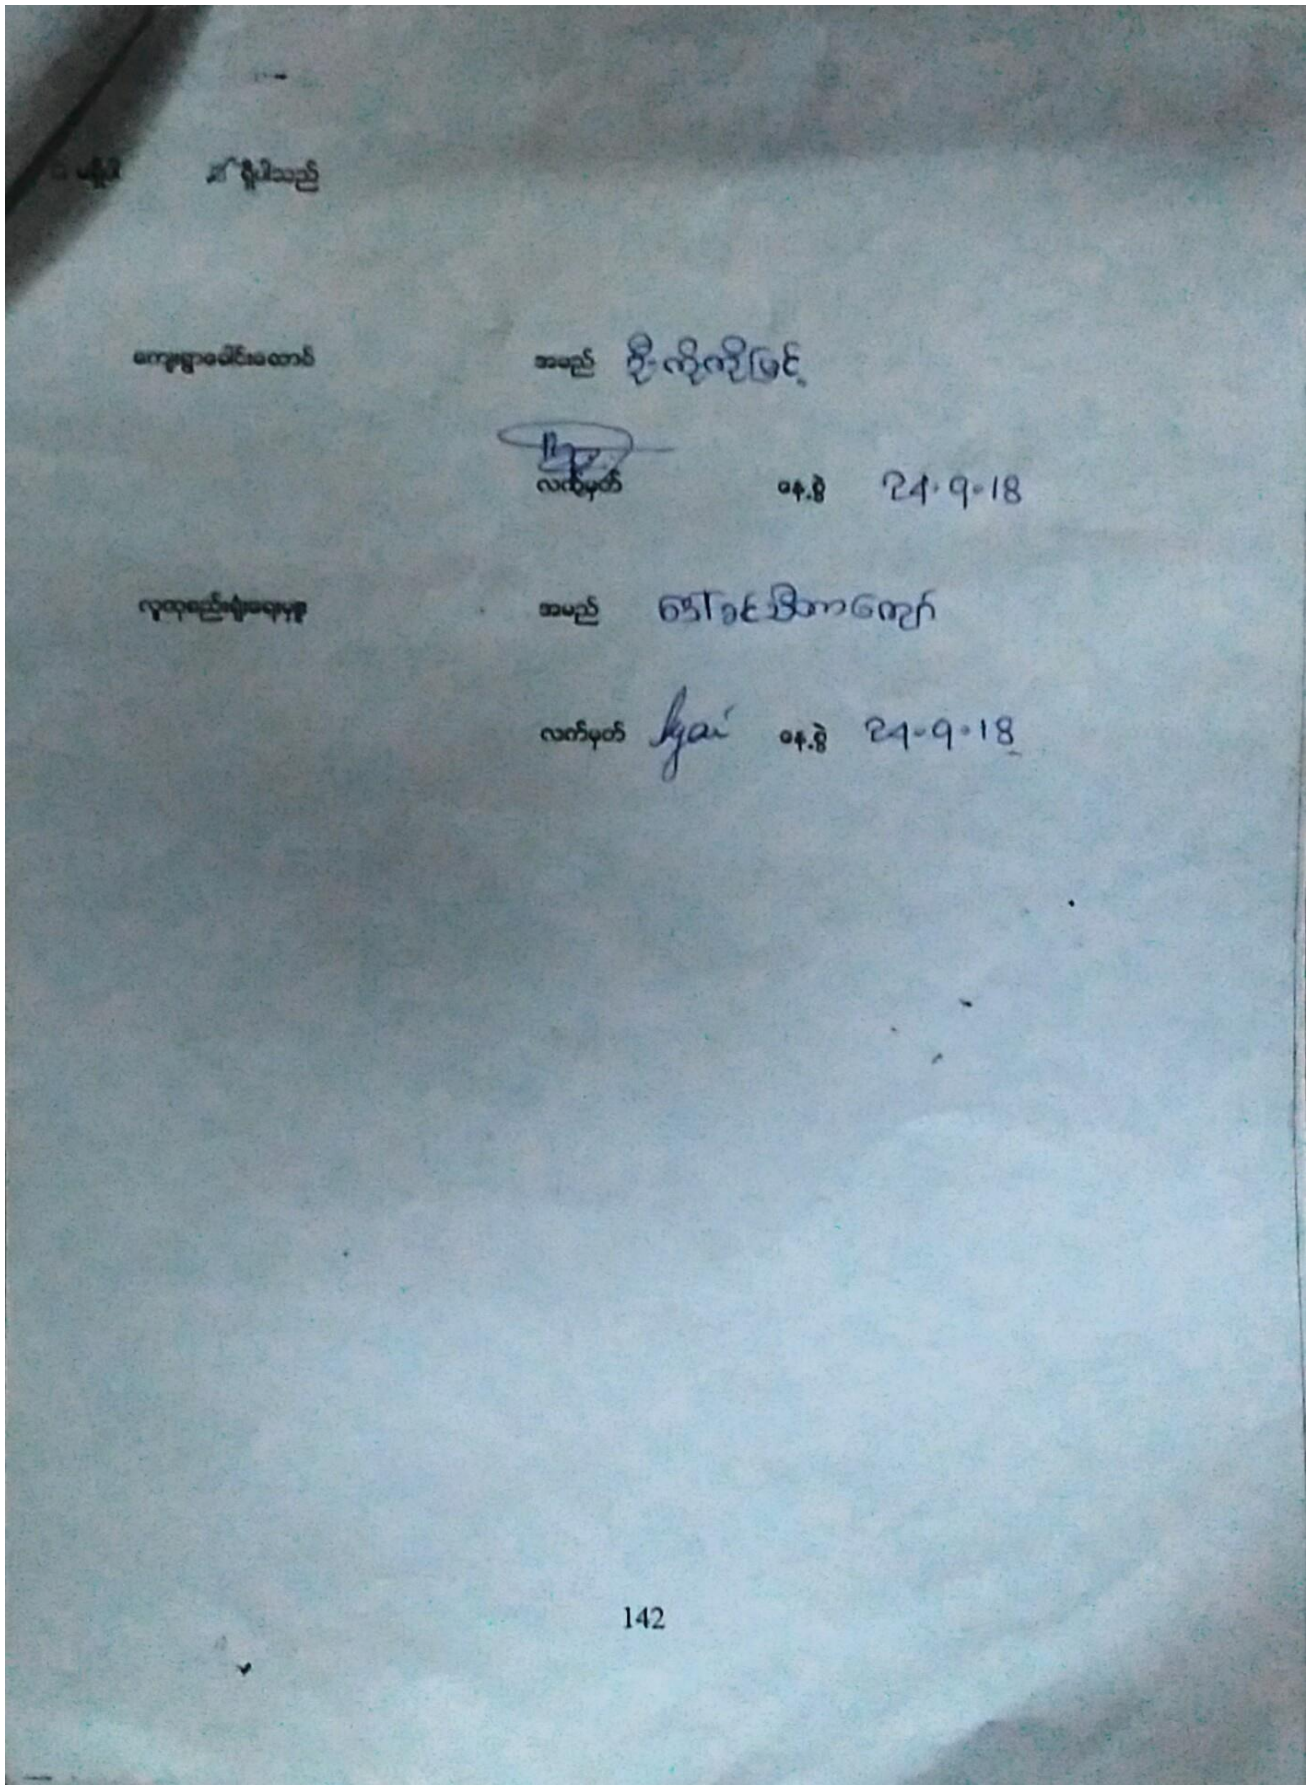 □ မရှိပါ ☑ ရှိပါသည်
ကျေးရွာခေါင်းဆောင် အမည် ဦးကိုကိုမြင့်
လက်မှတ် နေ့စွဲ 24.9.18
လူထုစည်းရုံးရေးမှူး အမည် ဒေါ်ခင်သီတာကျော်
လက်မှတ် နေ့စွဲ 24.9.18
142